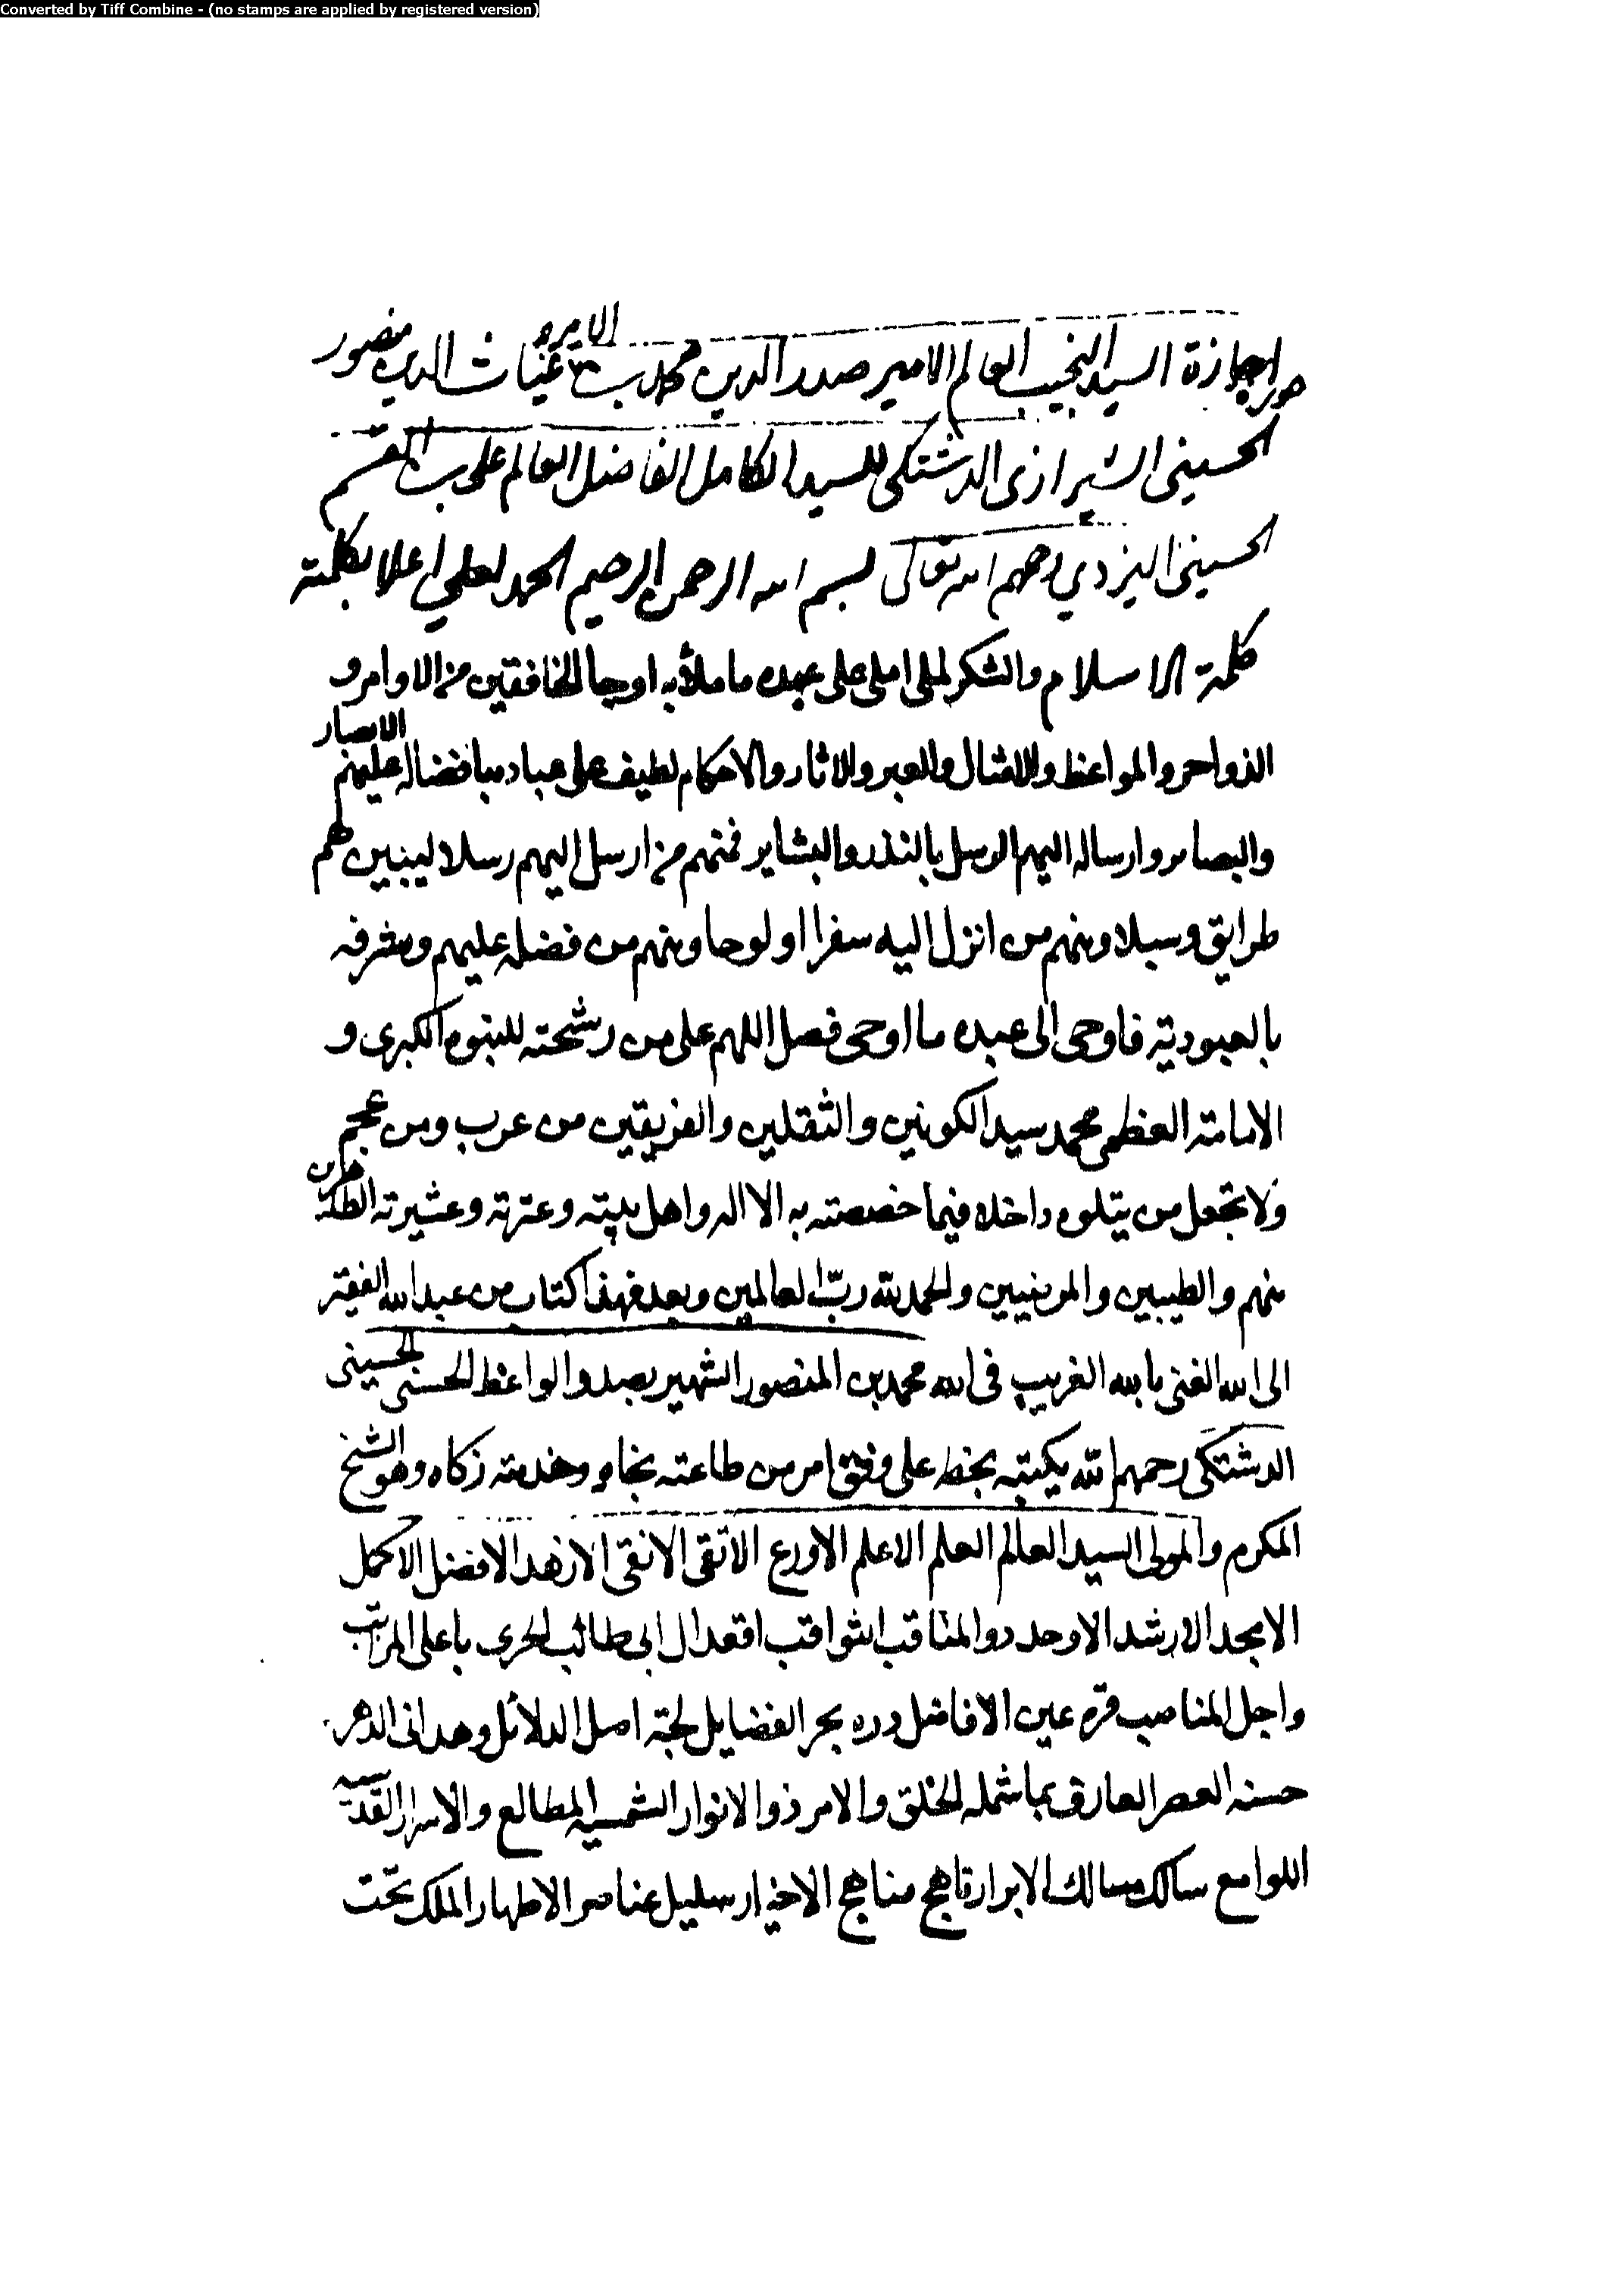 Converted by Tiff Combine - (no stamps are applied by registered version)
صورة اجازة السيد النجيب العالم الامير صدر الدين محمد بن الامير غياث الدين منصور
الحسيني الشيرازى الدشتكى للسيد الكامل الفاضل العالم على بن القسم
الحسينى اليزدي رحمهم الله تعالى بسم الله الرحمن الرحيم الحمد لعلي اعلا بكلمته
كلمة الاسلام والشكر لملى املى على عبده ما ملأ به اوجا الخافقين من الاوامر و
الزواجر والمواعظ والامثال والعبر والاثار والاحكام لطيف على عباده بافضاله عليهم الابصار
والبصاير وارساله اليهم الرسل بالنذر والبشاير فمنهم من ارسل اليهم رسلا ليبنين لهم
طرايق وسبلا ومنهم من انزل اليه سفرا او لوحا ومنهم من فضله عليهم وشرفه
بالعبودية فاوحى الى عبده ما اوحى فصل اللهم على من رشحته للنبوه الكبرى و
الامامة العظمى محمد سيد الكونين والثقلين والفريقين من عرب ومن عجم
ولا تجعل من يتلوه داخلا فيما خصصته به الا اله واهل بيته وعترته وعشيرته الطاهرين
منهم والطيبين والمرضيين والحمد لله رب العالمين وبعد فهذا كتاب من عبد الله الفقير
الى الله الغنى بالله الغريب فى الله محمد بن المنصور الشهير بصدر الواعظ الحسنى الحسينى
الدشتكى رحمهم الله يكتبه بخطه على وفق امر من طاعته نجاه وخدمته زكاه وهو الشيخ
المكرم والمولى السيد العالم العلم الاعلم الاورع الاتقى الانقى الازهد الافضل الاكمل
الامجد الارشد الاوحد ذو المناقب الثواقب اقعد ال ابى طالب الحرى باعلى المراتب
واجل المناصب قره عين الافاضل دره بحر الفضايل لجة اصل الدلائل وحدانى الدهر
حسنه العصر العارف بما شمله الخلق والامر ذو الانوار الشمسيه المطالع والاسرار القدسيه
اللوامع سالك مسالك الابرار ناهج مناهج الاخيار سليل عناصر الاطهار الملك تحت